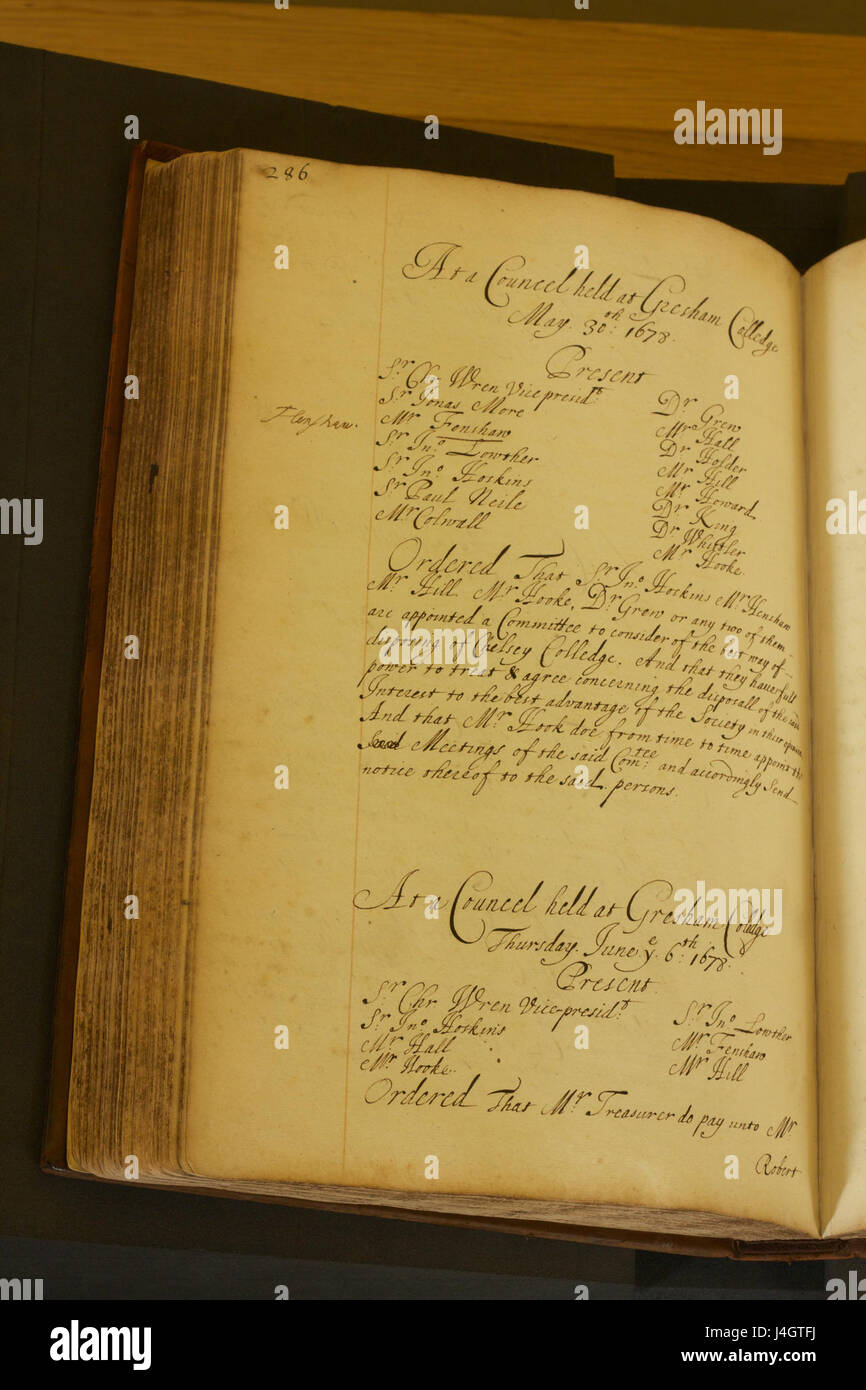 286
At a Councel held at Gresham Colledge
May. 30th: 1678.
Present
Sr. Chr Wren Vicepresidt.
Sr Jonas More
Mr Fenshaw
Sr. Jno. Lowther
Sr. Jno. Hoskins
Sr Paul Neile
Mr Colwall
Dr Grew
Mr Hall
Dr Holder
Mr Hill
Mr. Howard
Dr King
Dr Whistler
Mr Hooke.
Henshaw.
Ordered That Sr. Jno. Hoskins Mr Henshaw
Mr. Hill. Mr Hooke. Dr Grew or any two of them
are appointed a Committee to consider of the best way of
disposing of Chelsey Colledge. And that they have full
power to treat & agree concerning the disposall of the said
Interest to the best advantage of the Society in their opinion
And that Mr Hook doe from time to time appoint the
Meetings of the said Comtee: and accordingly Send
notice thereof to the said persons.
At a Councel held at Gresham Coledge
Thursday. June ye. 6th: 1678.
Present
Sr. Chr Wren Vice-presidt.
Sr. Jno. Hoskins
Mr Hall
Mr. Hooke.
Sr Jno. Lowther
Mr. Fenshaw
Mr Hill
Ordered That Mr. Treasurer do pay unto Mr.
Robert
alamy
alamy stock photo
Image ID: J4GTFJ
www.alamy.com